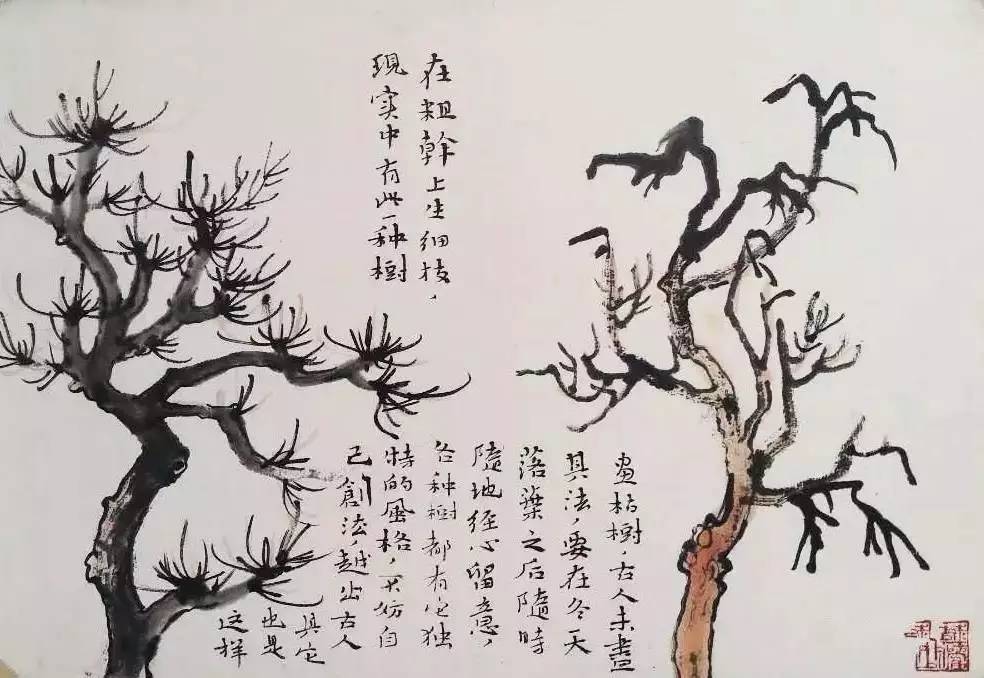 在粗幹上生细枝，
现实中有此一种樹
画枯樹，古人未盡
其法，要在冬天
落葉之后隨時
隨地经心留意，
各种樹都有它独
特的風格，不妨自
己創法，越出古人
其它
也是
这样